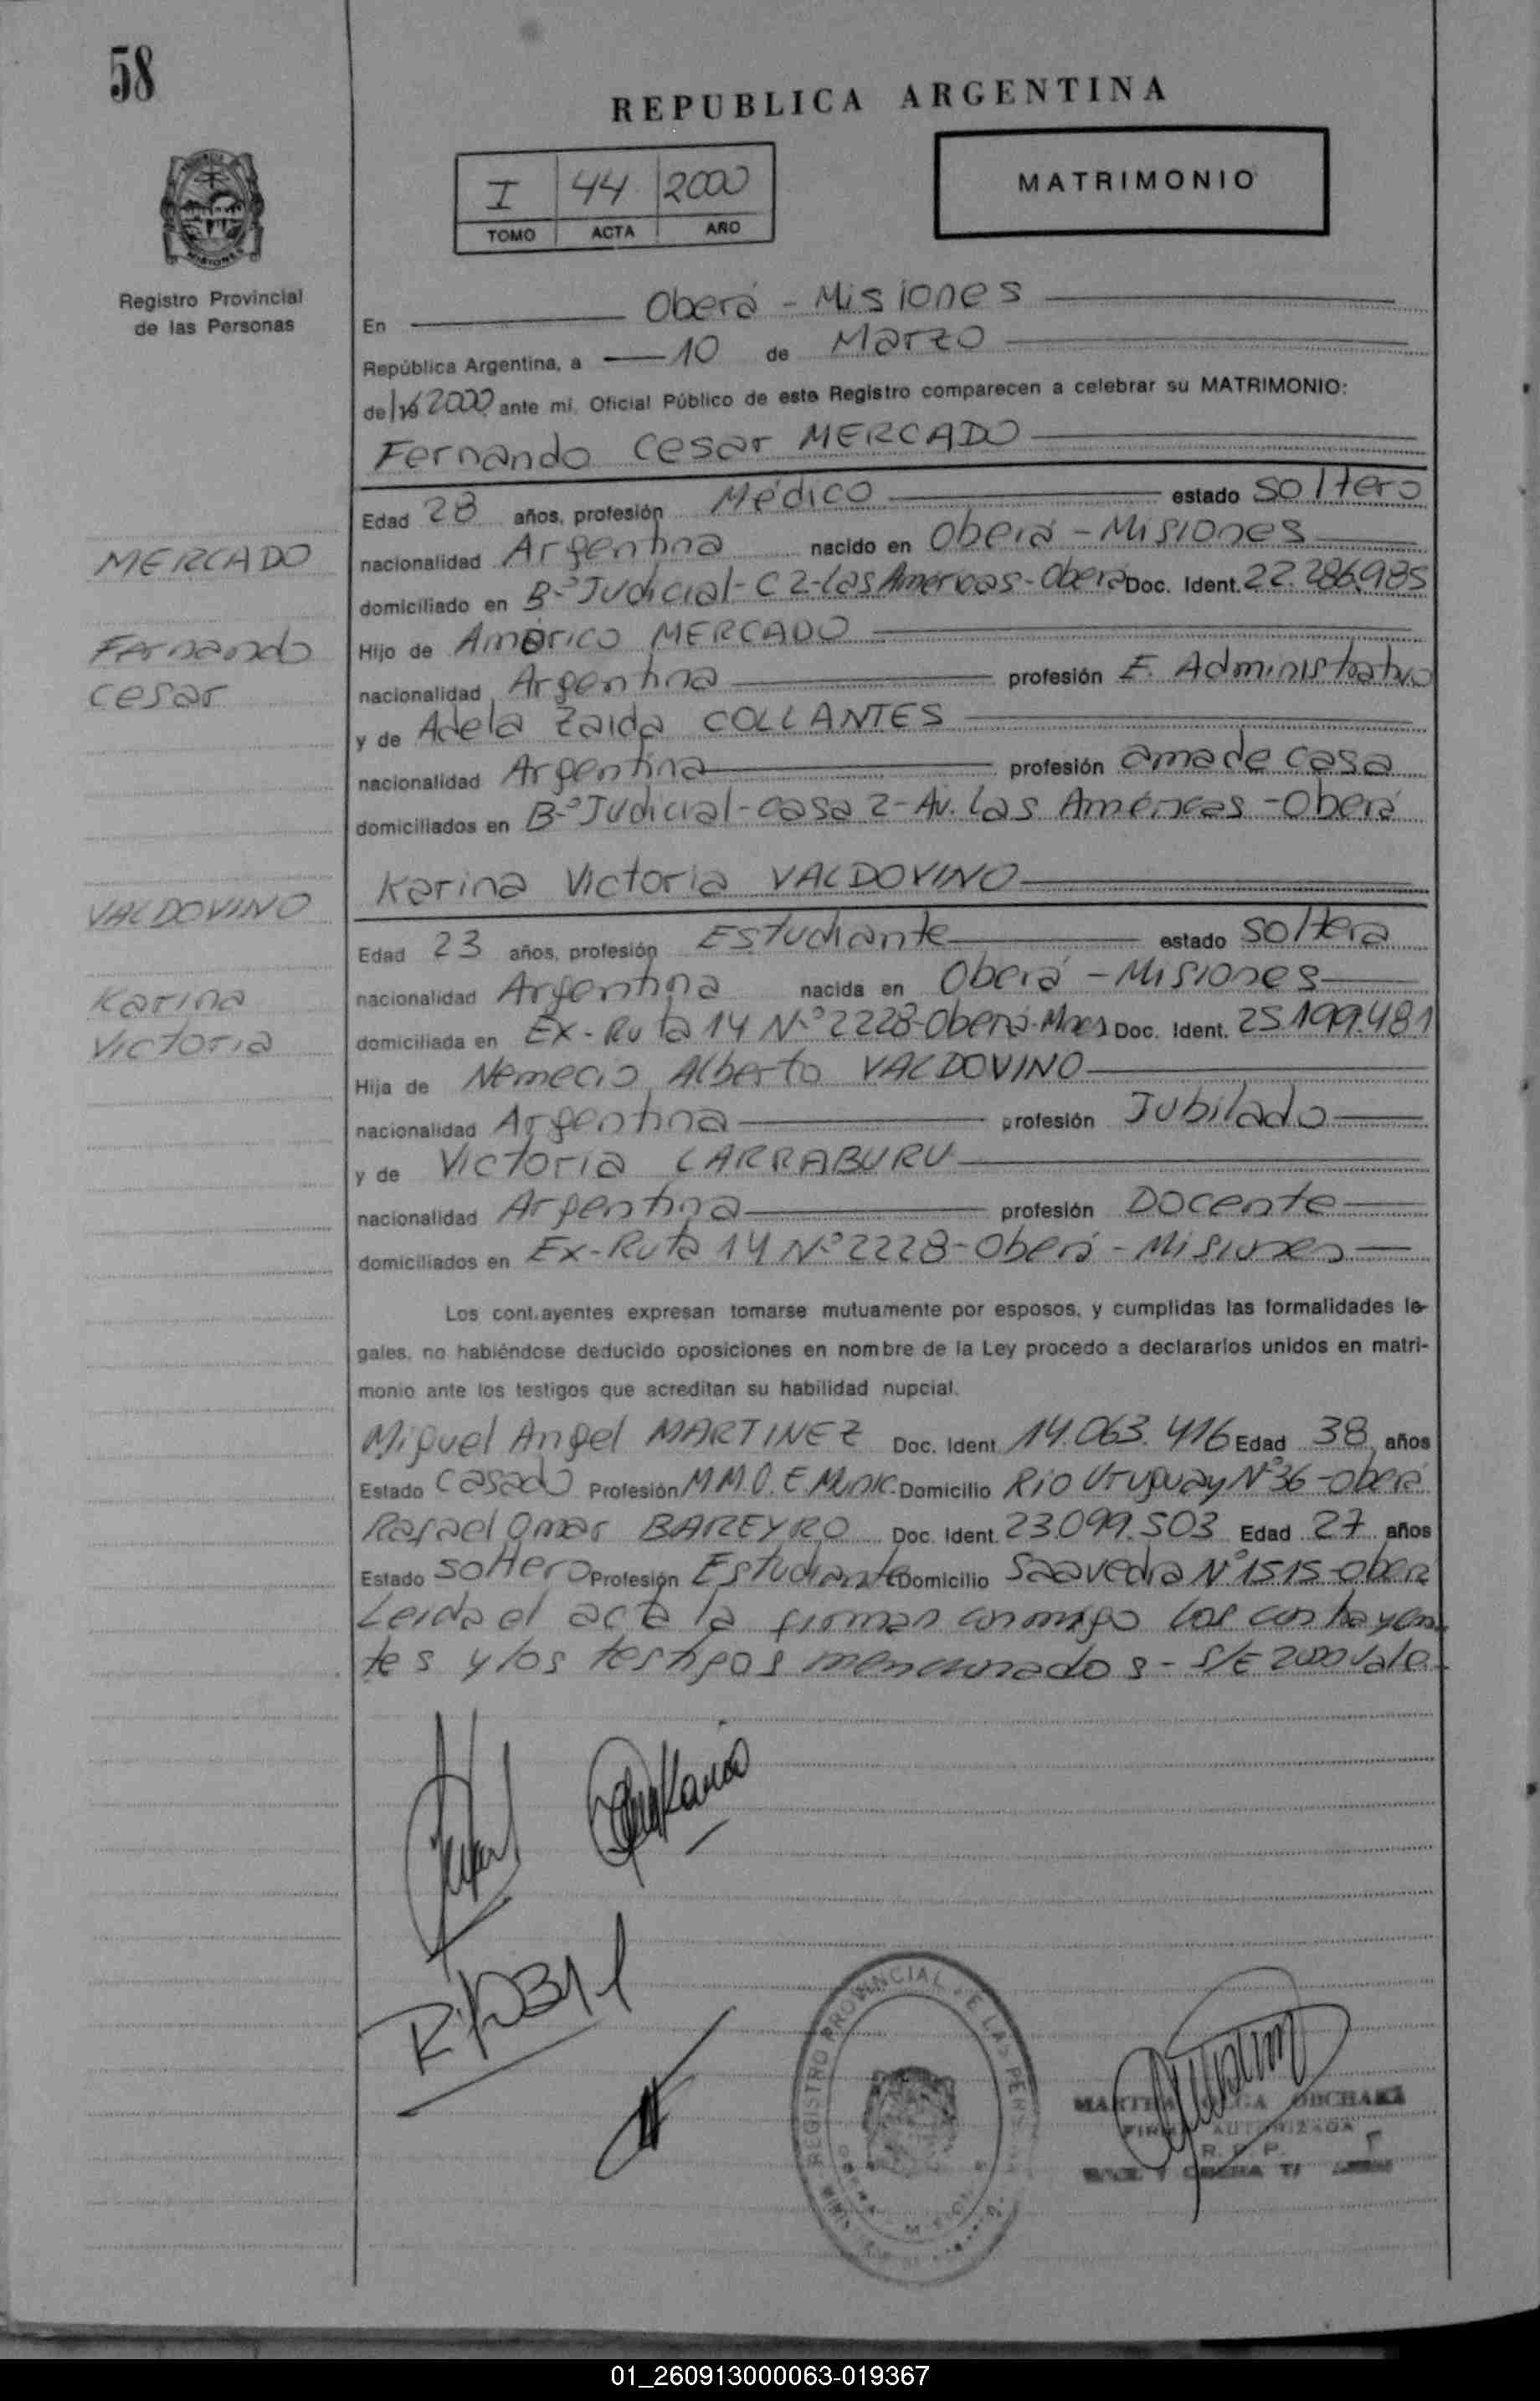 58
REPUBLICA ARGENTINA
I 44 2000
TOMO ACTA AÑO
MATRIMONIO
Registro Provincial
de las Personas
En Oberá - Misiones
República Argentina, a 10 de Marzo
de 2000 ante mi, Oficial Público de este Registro comparecen a celebrar su MATRIMONIO:
Fernando Cesar MERCADO
Edad 28 años, profesión Médico estado soltero
MERCADO
nacionalidad Argentina nacido en Oberá - Misiones
domiciliado en B-º Judicial - C 2 - Las Américas - Oberá Doc. Ident. 22.286.985
Fernando
Cesar
Hijo de Américo MERCADO
nacionalidad Argentina profesión E. Administrativo
y de Adela Zaida COLLANTES
nacionalidad Argentina profesión ama de casa
domiciliados en B-º Judicial - casa 2 - Av. Las Américas - Oberá
Karina Victoria VALDOVINO
VALDOVINO
Edad 23 años, profesión Estudiante estado soltera
Karina
Victoria
nacionalidad Argentina nacida en Oberá - Misiones
domiciliada en Ex-Ruta 14 N-º 2228 - Oberá - Mnes Doc. Ident. 25.199.481
Hija de Nemecio Alberto VALDOVINO
nacionalidad Argentina profesión Jubilado
y de Victoria LARRABURU
nacionalidad Argentina profesión Docente
domiciliados en Ex-Ruta 14 N-º 2228 - Oberá - Misiones
Los contrayentes expresan tomarse mutuamente por esposos, y cumplidas las formalidades le-
gales, no habiéndose deducido oposiciones en nombre de la Ley procedo a declararlos unidos en matri-
monio ante los testigos que acreditan su habilidad nupcial.
Miguel Angel MARTINEZ Doc. Ident. 14.063.416 Edad 38 años
Estado casado Profesión M.M.O. E. Munic. Domicilio Río Uruguay Nº 36 - Oberá
Rafael Omar BAREYRO Doc. Ident. 23.099.503 Edad 27 años
Estado soltero Profesión Estudiante Domicilio Saavedra Nº 1515 - Oberá
Leida el acta la firman conmigo los contrayen-
tes y los testigos mencionados - S/E 2000 Vale
REGISTRO PROVINCIAL DE LAS PERS
MARTHA OLGA
FIRMA AUTORIZADA
R. P.
01_260913000063-019367